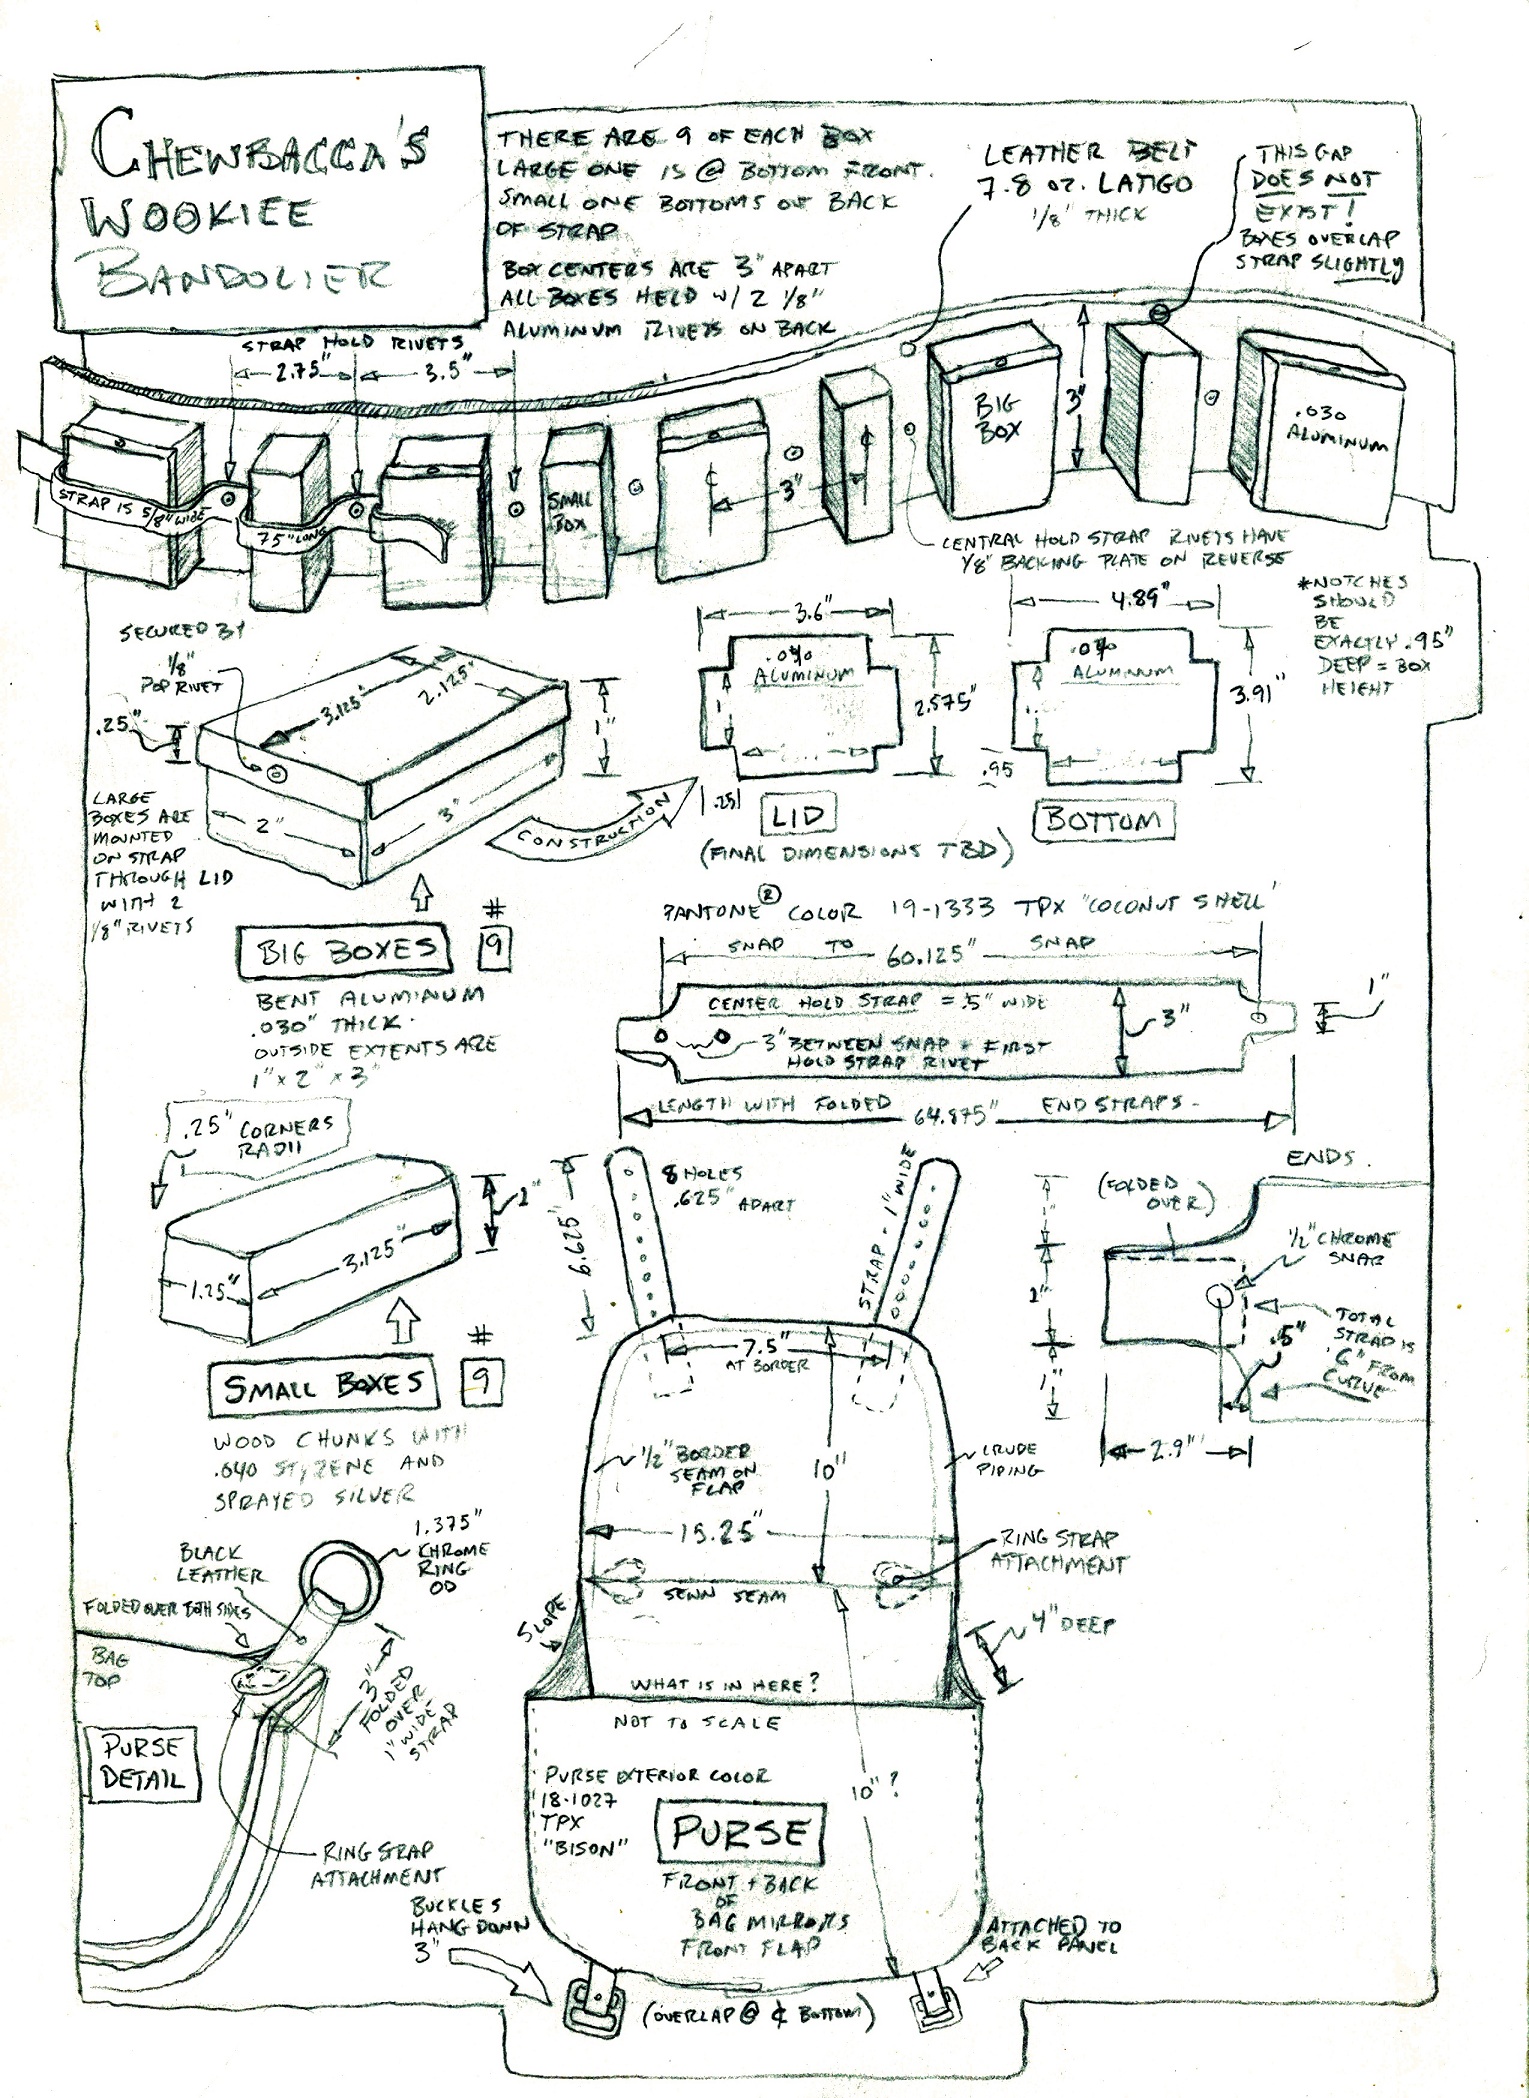 CHEWBACCA'S
WOOKIEE
BANDOLIER
THERE ARE 9 OF EACH BOX
LARGE ONE IS @ BOTTOM FRONT.
SMALL ONE BOTTOMS OUT BACK
OF STRAP
BOX CENTERS ARE 3" APART
ALL BOXES HELD W/ 2 1/8"
ALUMINUM RIVETS ON BACK
LEATHER BELT
7.8 OZ. LATIGO
1/8" THICK
THIS GAP
DOES NOT
EXIST!
BOXES OVERLAP
STRAP SLIGHTLY
STRAP HOLD RIVETS
2.75"
3.5"
3"
BIG
BOX
.030
ALUMINUM
STRAP IS 5/8" WIDE
75" LONG
SMALL
BOX
3"
CENTRAL HOLD STRAP RIVETS HAVE
1/8" BACKING PLATE ON REVERSE
SECURED BY
1/8"
POP RIVET
.25"
3.125"
2.125"
1"
2"
3"
LARGE
BOXES ARE
MOUNTED
ON STRAP
THROUGH LID
WITH 2
1/8" RIVETS
CONSTRUCTION
3.6"
ALUMINUM
2.575"
.25
LID
4.89"
ALUMINUM
3.91"
.95
BOTTOM
(FINAL DIMENSIONS TBD)
*NOTCHES
SHOULD
BE
EXACTLY .95"
DEEP = BOX
HEIGHT
BIG BOXES
#
9
BENT ALUMINUM
.030" THICK.
OUTSIDE EXTENTS ARE
1" x 2" x 3"
PANTONE ® COLOR 19-1333 TPX 'COCONUT SHELL'
SNAP TO SNAP
60.125"
CENTER HOLD STRAP = .5" WIDE
3" BETWEEN SNAP + FIRST
HOLD STRAP RIVET
3"
1"
LENGTH WITH FOLDED 64.875" END STRAPS.
.25" CORNERS
RADII
2"
3.125"
1.25"
SMALL BOXES
#
9
WOOD CHUNKS WITH
.040 STYRENE AND
SPRAYED SILVER
6.625"
8 HOLES
.625" APART
STRAP - 1" WIDE
7.5"
AT BORDER
1/2" BORDER
SEAM ON
FLAP
10"
CRUDE
PIPING
15.25"
SEWN SEAM
RING STRAP
ATTACHMENT
SLOPE
4" DEEP
WHAT IS IN HERE?
NOT TO SCALE
PURSE EXTERIOR COLOR
18-1027
TPX
"BISON"
10" ?
PURSE
FRONT + BACK
OF
BAG MIRRORS
FRONT FLAP
BUCKLES
HANG DOWN
3"
(OVERLAP @ ℄ BOTTOM)
ATTACHED TO
BACK PANEL
ENDS.
(FOLDED
OVER)
1"
2"
1"
1/2" CHROME
SNAP
TOTAL
STRAP IS
6" FROM
CURVE
.5"
2.9"
1.375"
CHROME
RING
OD
BLACK
LEATHER
FOLDED OVER BOTH SIDES
BAG
TOP
3"
FOLDED
OVER
1" WIDE
STRAP
PURSE
DETAIL
RING STRAP
ATTACHMENT